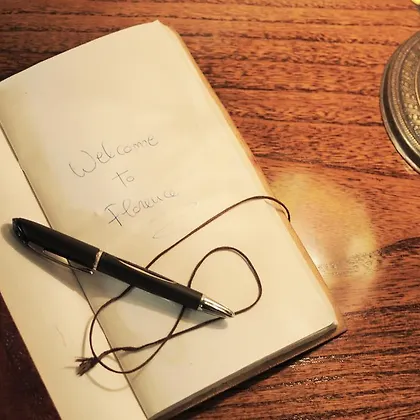 Welcome
to
Florence